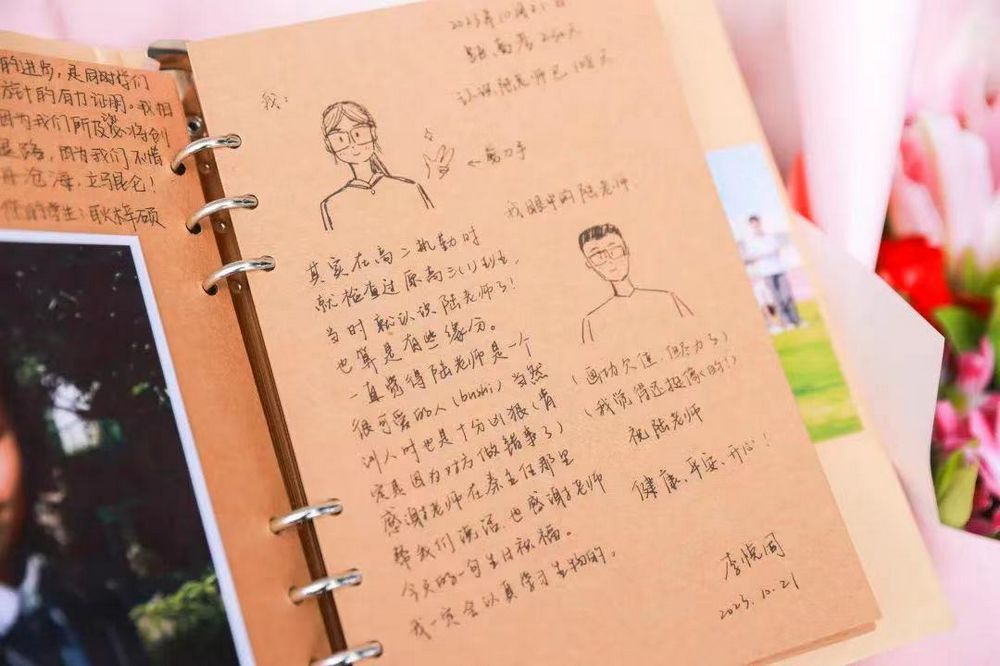 的进步，是同时待们
旅计的有力证明。我相
因为我们所及必将创
是路，因为我们不惜
沧海，立马昆仑！
你的学生：耿梓硕
2023年10月21日
距高考230天
认识陆老师已
天
我：
←剪刀手
我眼中的陆老师：
其实在高二执勤时
就检查过原高三(1)班主，
当时就认识陆老师了！
也算是有些缘分。
一直觉得陆老师是一个
很可爱的人(bushi)当然
训人时也是十分凶狠(肯
定是因为对方做错事了)
感谢老师在秦主任那里
帮我们说话，也感谢老师
今天的一句生日祝福。
我一定会认真学习生物的。
(画功欠佳，但尽力了)
(我觉得还挺像的！)
祝陆老师
健康、平安、开心！
李悦同
2023.10.21